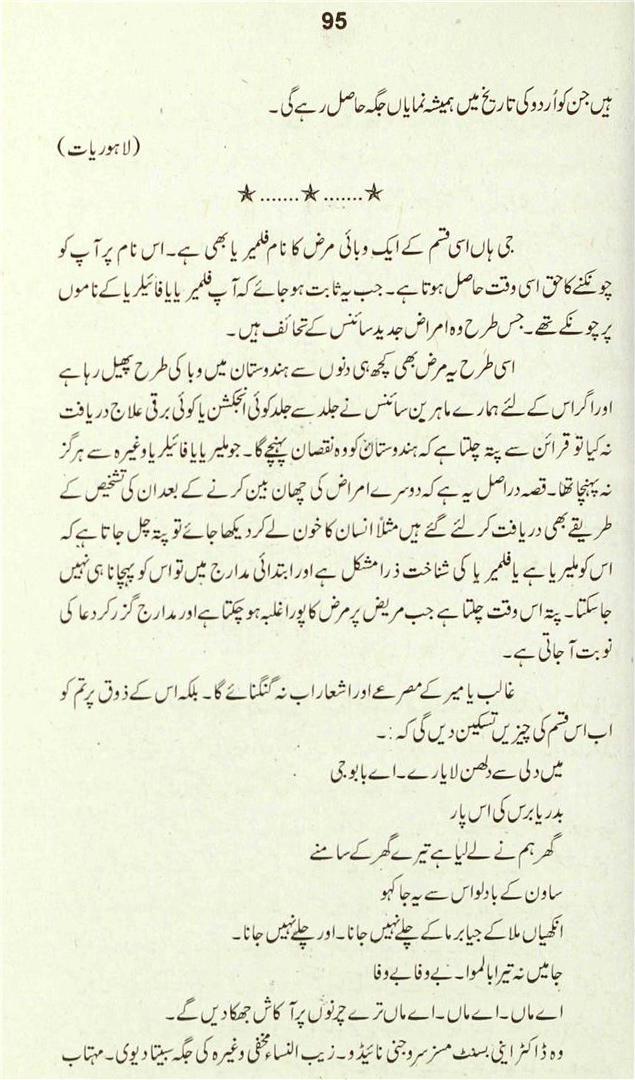 95
ہیں جن کو اُردو کی تاریخ میں ہمیشہ نمایاں جگہ حاصل رہے گی۔
(لاہوریات)
★.......★.......★
جی ہاں اسی قسم کے ایک وبائی مرض کا نام فلمیریا بھی ہے۔ اس نام پر آپ کو
چونکنے کا حق اسی وقت حاصل ہوتا ہے۔ جب یہ ثابت ہو جائے کہ آپ فلمیریا یا فائیلریا کے ناموں
پر چونکے تھے۔ جس طرح وہ امراض جدید سائنس کے تحائف ہیں۔
اسی طرح یہ مرض بھی کچھ ہی دنوں سے ہندوستان میں وبا کی طرح پھیل رہا ہے
اور اگر اس کے لئے ہمارے ماہرین سائنس نے جلد سے جلد کوئی انجکشن یا کوئی برقی علاج دریافت
نہ کیا تو قرائن سے پتہ چلتا ہے کہ ہندوستان کو وہ نقصان پہنچے گا۔ جو ملیریا یا فائلیریا وغیرہ سے ہرگز
نہ پہنچا تھا۔ قصہ دراصل یہ ہے کہ دوسرے امراض کی چھان بین کرنے کے بعد ان کی تشخیص کے
طریقے بھی دریافت کر لئے گئے ہیں مثلاً انسان کا خون لے کر دیکھا جائے تو پتہ چل جاتا ہے کہ
اس کو ملیریا ہے یا فلمیریا کی شناخت ذرا مشکل ہے اور ابتدائی مدارج میں تو اس کو پہچانا ہی نہیں
جا سکتا۔ پتہ اس وقت چلتا ہے جب مریض پر مرض کا پورا غلبہ ہو چکتا ہے اور مدارج گزر کر دعا کی
نوبت آ جاتی ہے۔
غالب یا میر کے مصرعے اور اشعار اب نہ گنگنائے گا۔ بلکہ اس کے ذوق پر تم کو
اب اس قسم کی چیزیں تسکین دیں گی کہ:۔
میں دلی سے دلھن لایا رے۔ اے بابو جی
بدریا برس گی اس پار
گھر ہم نے لے لیا ہے تیرے گھر کے سامنے
ساون کے بادلو اس سے یہ جا کہو
انکھیاں ملا کے جیا برما کے چلے نہیں جانا۔ اور چلے نہیں جانا۔
جا میں نہ تیرا بالموا۔ بے وفا بے وفا
اے ماں۔ اے ماں۔ اے ماں ترے چرنوں پر آکاش جھکا دیں گے۔
وہ ڈاکٹر اینی بسنٹ مسز سروجنی نائیڈو۔ زیب النساء مخفی وغیرہ کی جگہ سیتا دیوی۔ مہتاب